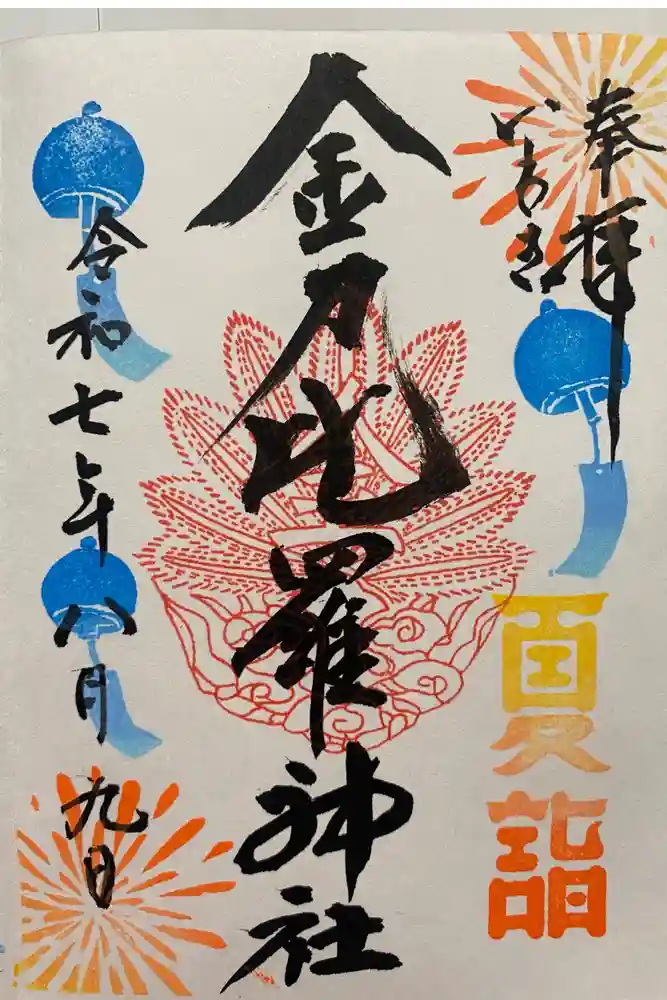 奉拝
いわき
夏詣
金刀比羅神社
令和七年八月九日